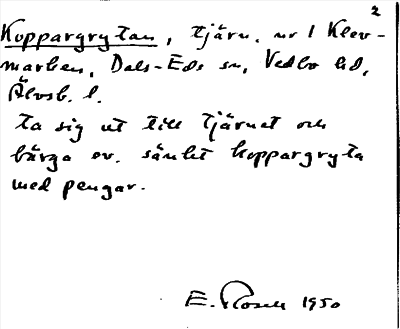 2
Koppargrytan, tjärn, nr 1 Klev-
marken, Dals-Eds sn, Vedbo hd,
Älvsb. l.
ta sig ut till tjärnet och
bärga ev. sänkt koppargryta
med pengar.
E. Rosell 1950